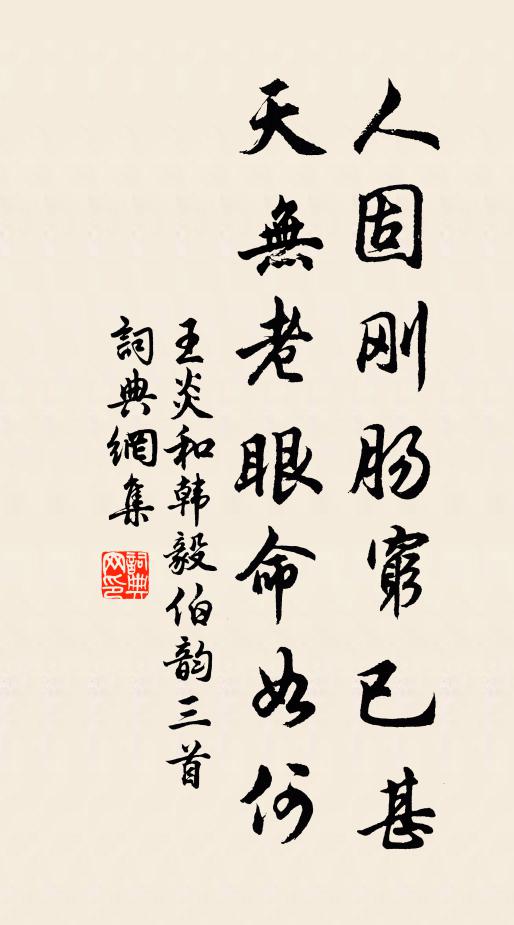 人固刚肠穷已甚
天無老眼命如何
王炎和韩毅伯韵三首
詞典網集
詞典網印